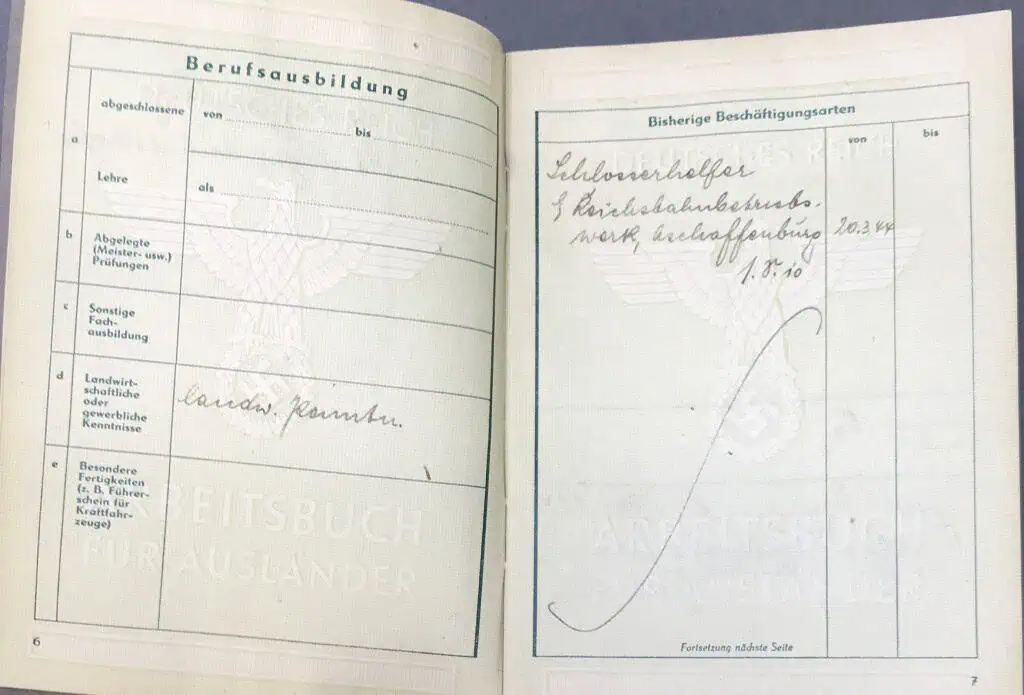 Berufsausbildung
a
abgeschlossene
Lehre
von
bis
als
b
Abgelegte
(Meister- usw.)
Prüfungen
c
Sonstige
Fach-
ausbildung
d
Landwirt-
schaftliche
oder
gewerbliche
Kenntnisse
landw.
e
Besondere
Fertigkeiten
(z. B. Führer-
schein für
Kraftfahr-
zeuge)
DEUTSCHES REICH
ARBEITSBUCH
FÜR AUSLÄNDER
6
Bisherige Beschäftigungsarten
von
bis
Schlosserhelfer
Reichsbahnbetriebs-
werk, Aschaffenburg 20.3.44
DEUTSCHES REICH
ARBEITSBUCH
Fortsetzung nächste Seite
7